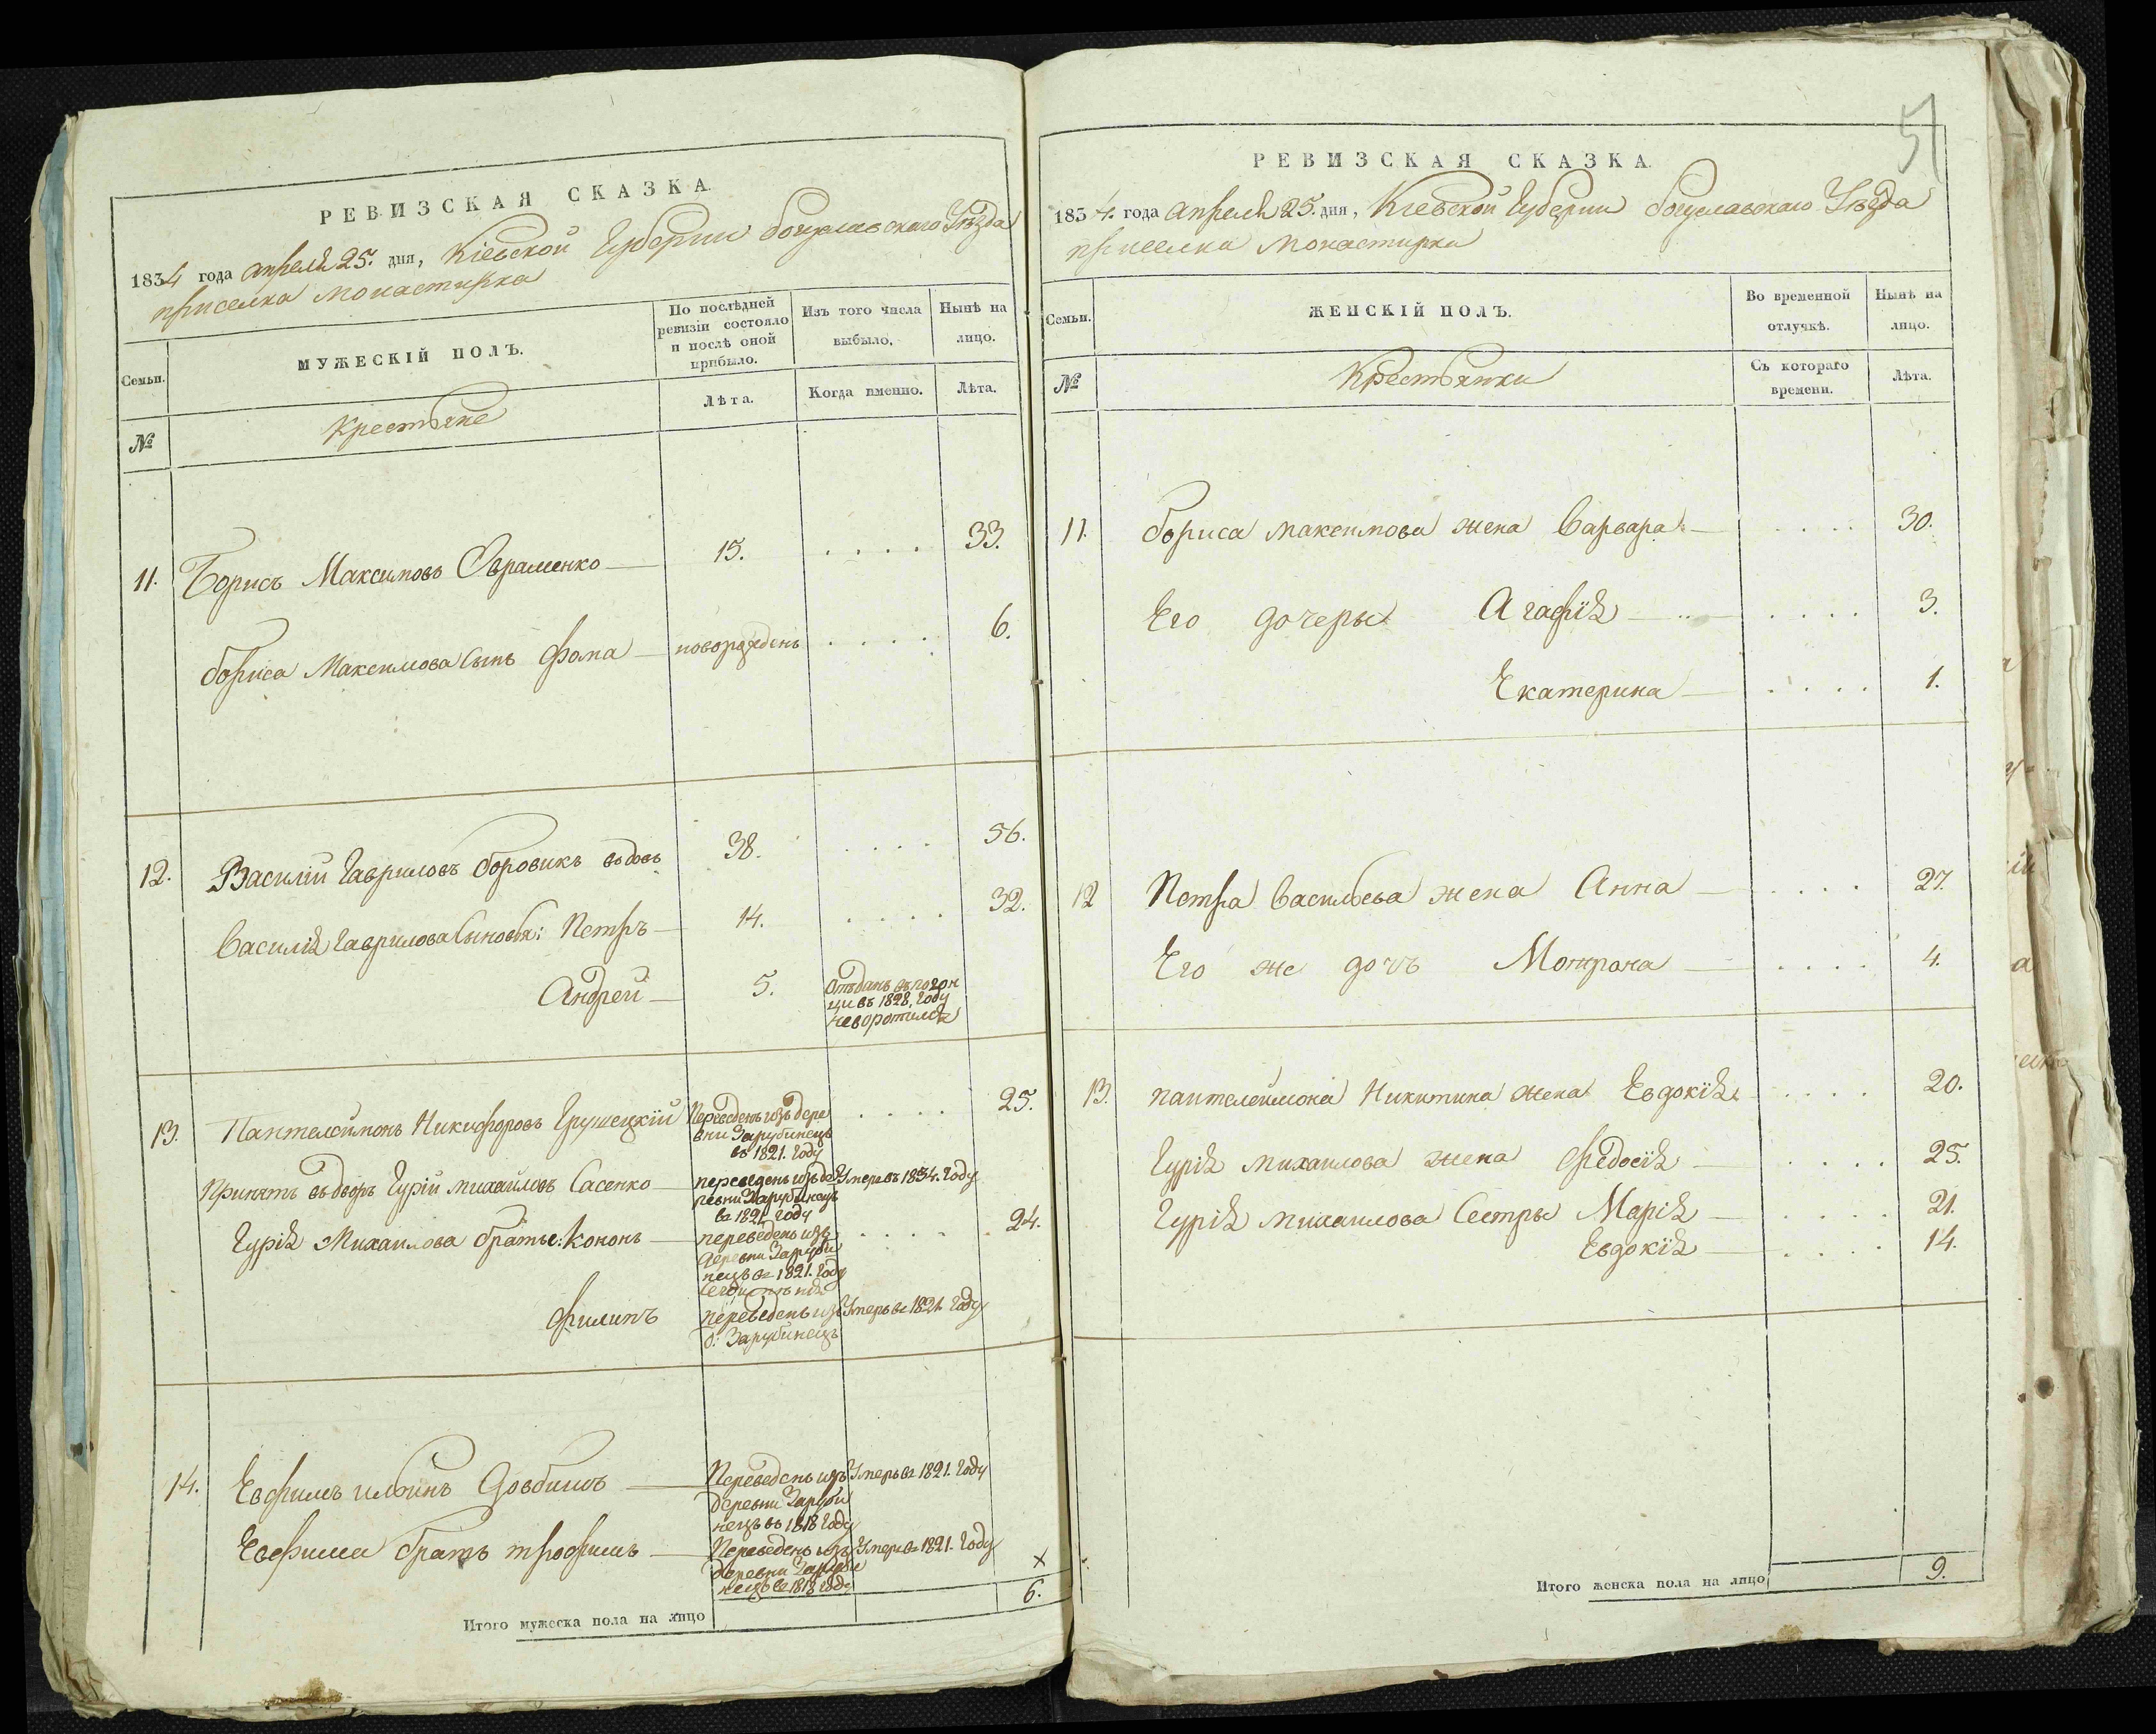 РЕВИЗСКАЯ СКАЗКА.
1834 года апреля 25. дня, Кіевской Губерніи богуславскаго Уѣзда
приселка Монастирка
Семьи.
МУЖЕСКІЙ ПОЛЪ.
По послѣдней ревизіи состояло и послѣ оной прибыло.
Изъ того числа выбыло.
Нынѣ на лицо.
№
Крестьяне
Лѣта.
Когда именно.
Лѣта.
11. Борисъ Максимовъ Авраменко 15. 33.
бориса Максимова Сынъ Фома новорожденъ 6.
12. Василій Гавриловъ боровикъ вдовъ 38. 56.
Василія Гаврилова Сыновья: Петръ 14. 32.
Андрей 5. Отъданъ въ погон
щи въ 1828, Году
неворотился
13. Пантелеймонъ Никифоровъ Грушецкій Переведенъ изъ дере
вни Зарубинецъ
въ 1821. Году
25.
Принятъ въ дворъ Гурій михайловъ Сасенко переведенъ изъ де
ревни Зарубинецъ
въ 1821 году
Умеръ въ 1834. Году
Гурія Михаилова братье: Кононъ переведенъ изъ
деревни Заруби
нецъ въ 1821. Году
24.
Филипъ переведенъ изъ
д: Зарубинецъ
Умеръ въ 1821 Году
14. Евфимъ ильинъ Довбишъ Переведенъ изъ
деревни Заруби
нецъ въ 1818 Году
Умеръ въ 1821. Году
Евфима братъ трофимъ Переведенъ изъ
деревни Заруби
нецъ въ 1818 году
Умеръ въ 1821. Году
×
Итого мужеска пола на лицо 6.
51
РЕВИЗСКАЯ СКАЗКА.
1834. года апреля 25. дня, Кіевской Губерніи богуславскаго Уѣзда
приселка Монастирка
Семьи.
ЖЕНСКІЙ ПОЛЪ.
Во временной отлучкѣ.
Нынѣ на лицо.
№
Крестьянки
Съ котораго времени.
Лѣта.
11. бориса Максимова жена Варвара 30.
Его дочеры Агафія 3.
Екатерина 1.
12 Петра Васильева жена Анна 27.
Его же дочь Мотрона 4.
13. пантелеимона Никитина жена Евдокія 20.
Гурія михаилова жена Федосія 25.
Гурія михаилова Сестры Марія 21.
Евдокія 14.
Итого женска пола на лицо 9.